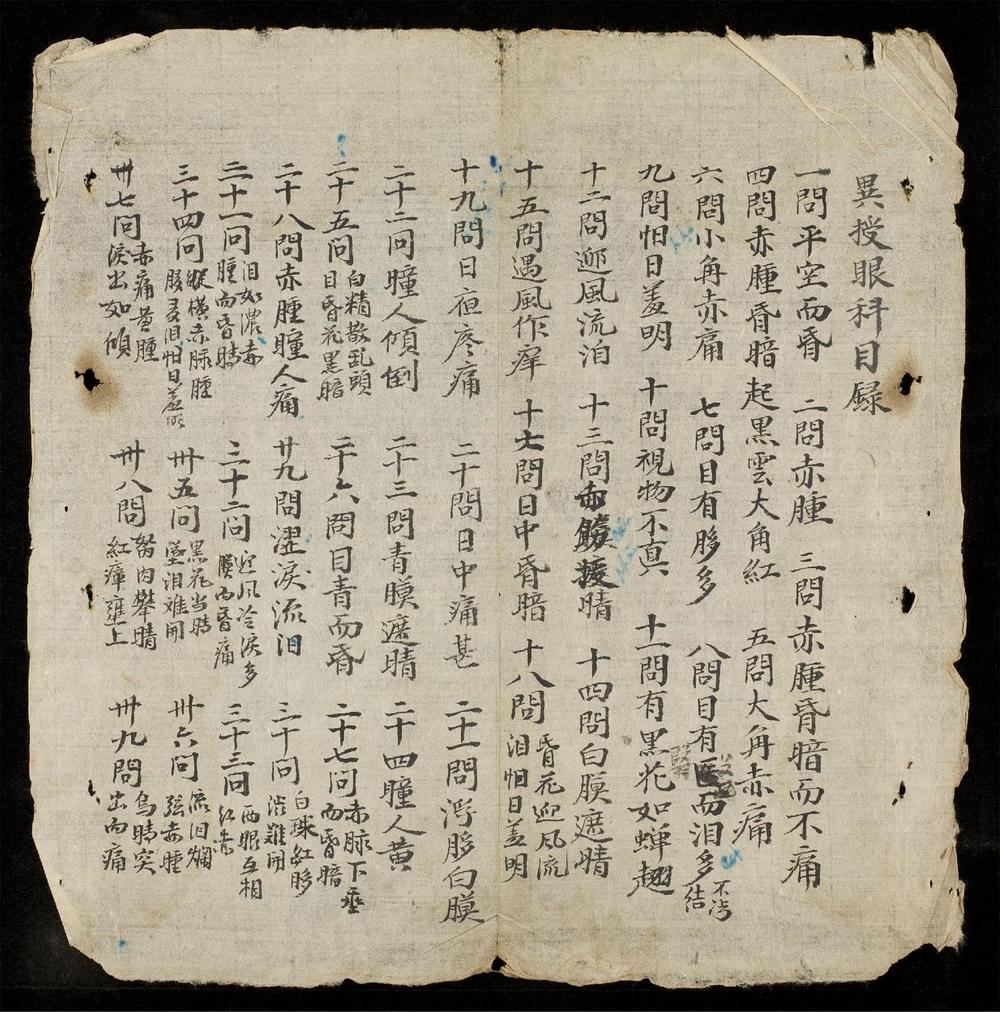 異授眼科目録
一問平空而昏 二問赤腫 三問赤腫昏暗而不痛
四問赤腫昏暗起黑雲大角紅 五問大角赤痛
六問小角赤痛 七問目有眵多 八問目有医而泪多不沽結
九問怕日羞明 十問視物不真 十一問有黑花如蟬翅
十二問迎風流泊 十三問赤膜援睛 十四問白膜遮睛
十五問遇風作痒 十七問日中昏暗 十八問昏花迎风流泪怕日羞明
十九問日夜疼痛 二十問日中痛甚 二十一問濘眵白膜
二十二問瞳人傾倒 二十三問青膜遮睛 二十四瞳人黄
二十五問白精散乱頭目昏花黑暗 二十六問目青而昏 二十七問赤脉下垂而昏暗
二十八問赤腫瞳人痛 廿九問澀淚流泪 三十問白珠红眵澁難開
三十一问泪如濃赤腫而昏睛 三十二问迎风冷淚多膜而昏痛 三十三问两眼互相红赤
三十四问縱横赤脉腫泪怕日羞明 卅五问黑花当睛墜泪难開 卅六问流泪爛弦赤腫
卅七问赤痛黄腫淚出如傾 卅八問努肉攀睛紅瘴壅上 卅九問烏睛突出而痛